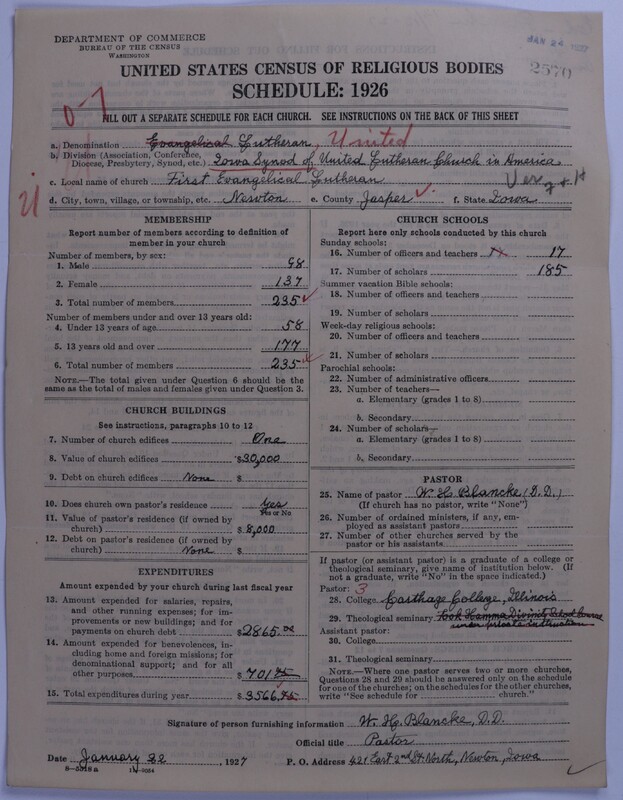 DEPARTMENT OF COMMERCE
BUREAU OF THE CENSUS
WASHINGTON
JAN 24 1927
2570
UNITED STATES CENSUS OF RELIGIOUS BODIES
SCHEDULE: 1926
0-7
FILL OUT A SEPARATE SCHEDULE FOR EACH CHURCH. SEE INSTRUCTIONS ON THE BACK OF THIS SHEET
a. Denomination Evangelical Lutheran, United
b. Division (Association, Conference, Diocese, Presbytery, Synod, etc.) Iowa Synod of United Lutheran Church in America
c. Local name of church First Evangelical Lutheran
d. City, town, village, or township, etc. Newton e. County Jasper f. State Iowa
MEMBERSHIP
Report number of members according to definition of
member in your church
Number of members, by sex:
1. Male 98
2. Female 137
3. Total number of members 235
Number of members under and over 13 years old:
4. Under 13 years of age 58
5. 13 years old and over 177
6. Total number of members 235
NOTE.—The total given under Question 6 should be the
same as the total of males and females given under Question 3.
CHURCH BUILDINGS
See instructions, paragraphs 10 to 12
7. Number of church edifices One
8. Value of church edifices $30,000
9. Debt on church edifices None $
10. Does church own pastor's residence Yes
Yes or No
11. Value of pastor's residence (if owned by
church) $8,000
12. Debt on pastor's residence (if owned by
church) None $
EXPENDITURES
Amount expended by your church during last fiscal year
13. Amount expended for salaries, repairs,
and other running expenses; for im-
provements or new buildings; and for
payments on church debt $2865.00
14. Amount expended for benevolences, in-
cluding home and foreign missions; for
denominational support; and for all
other purposes $701.75
15. Total expenditures during year $3566.75
CHURCH SCHOOLS
Report here only schools conducted by this church
Sunday schools:
16. Number of officers and teachers 17
17. Number of scholars 185
Summer vacation Bible schools:
18. Number of officers and teachers
19. Number of scholars
Week-day religious schools:
20. Number of officers and teachers
21. Number of scholars
Parochial schools:
22. Number of administrative officers
23. Number of teachers—
a. Elementary (grades 1 to 8)
b. Secondary
24. Number of scholars—
a. Elementary (grades 1 to 8)
b. Secondary
PASTOR
25. Name of pastor W. H. Blancke (D.D.)
(If church has no pastor, write "None")
26. Number of ordained ministers, if any, em-
ployed as assistant pastors
27. Number of other churches served by the
pastor or his assistants
If pastor (or assistant pastor) is a graduate of a college or
theological seminary, give name of institution below. (If
not a graduate, write "No" in the space indicated.)
Pastor: 3
28. College Carthage College, Illinois
29. Theological seminary Took Hamma Divinity
under private instruction
Assistant pastor:
30. College
31. Theological seminary
NOTE.—Where one pastor serves two or more churches,
Questions 28 and 29 should be answered only on the schedule
for one of the churches; on the schedules for the other churches,
write "See schedule for church."
Signature of person furnishing information W. Hy. Blancke, D.D.
Official title Pastor
Date January 22, 1927 P. O. Address 421 East 2nd St. North, Newton, Iowa
8-5518a